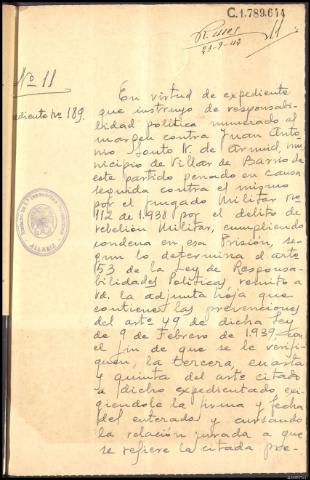 C.1.789.644
23-9-42
Nº 11
ediente nº 189.
En virtud de expediente
que instruyo de responsabi-
lidad política numerado al
margen contra Juan Anto-
nio Souto N. de Armid, mu-
nicipio de Villar de Barrio de
este partido penado en causa
seguida contra el mismo
por el Juzgado Militar nº
112 de 1.938 por el delito de
rebelión Militar, cumpliendo
condena en esa Prisión, se-
gun lo determina el arte
53 de la Ley de Responsa-
bilidades Políticas, remito a
Vd. la adjunta hoja que
contiene las prevenciones
del arte 49 de dicha Ley
de 9 de Febrero de 1.939 con
el fin de que se le verifi-
quen, la tercera, cuarta
y quinta del arte citado
a dicho expedientado exi-
giendole la firma y fecha
del enterado y cursando
la relación jurada a que
se refiere la citada pre-